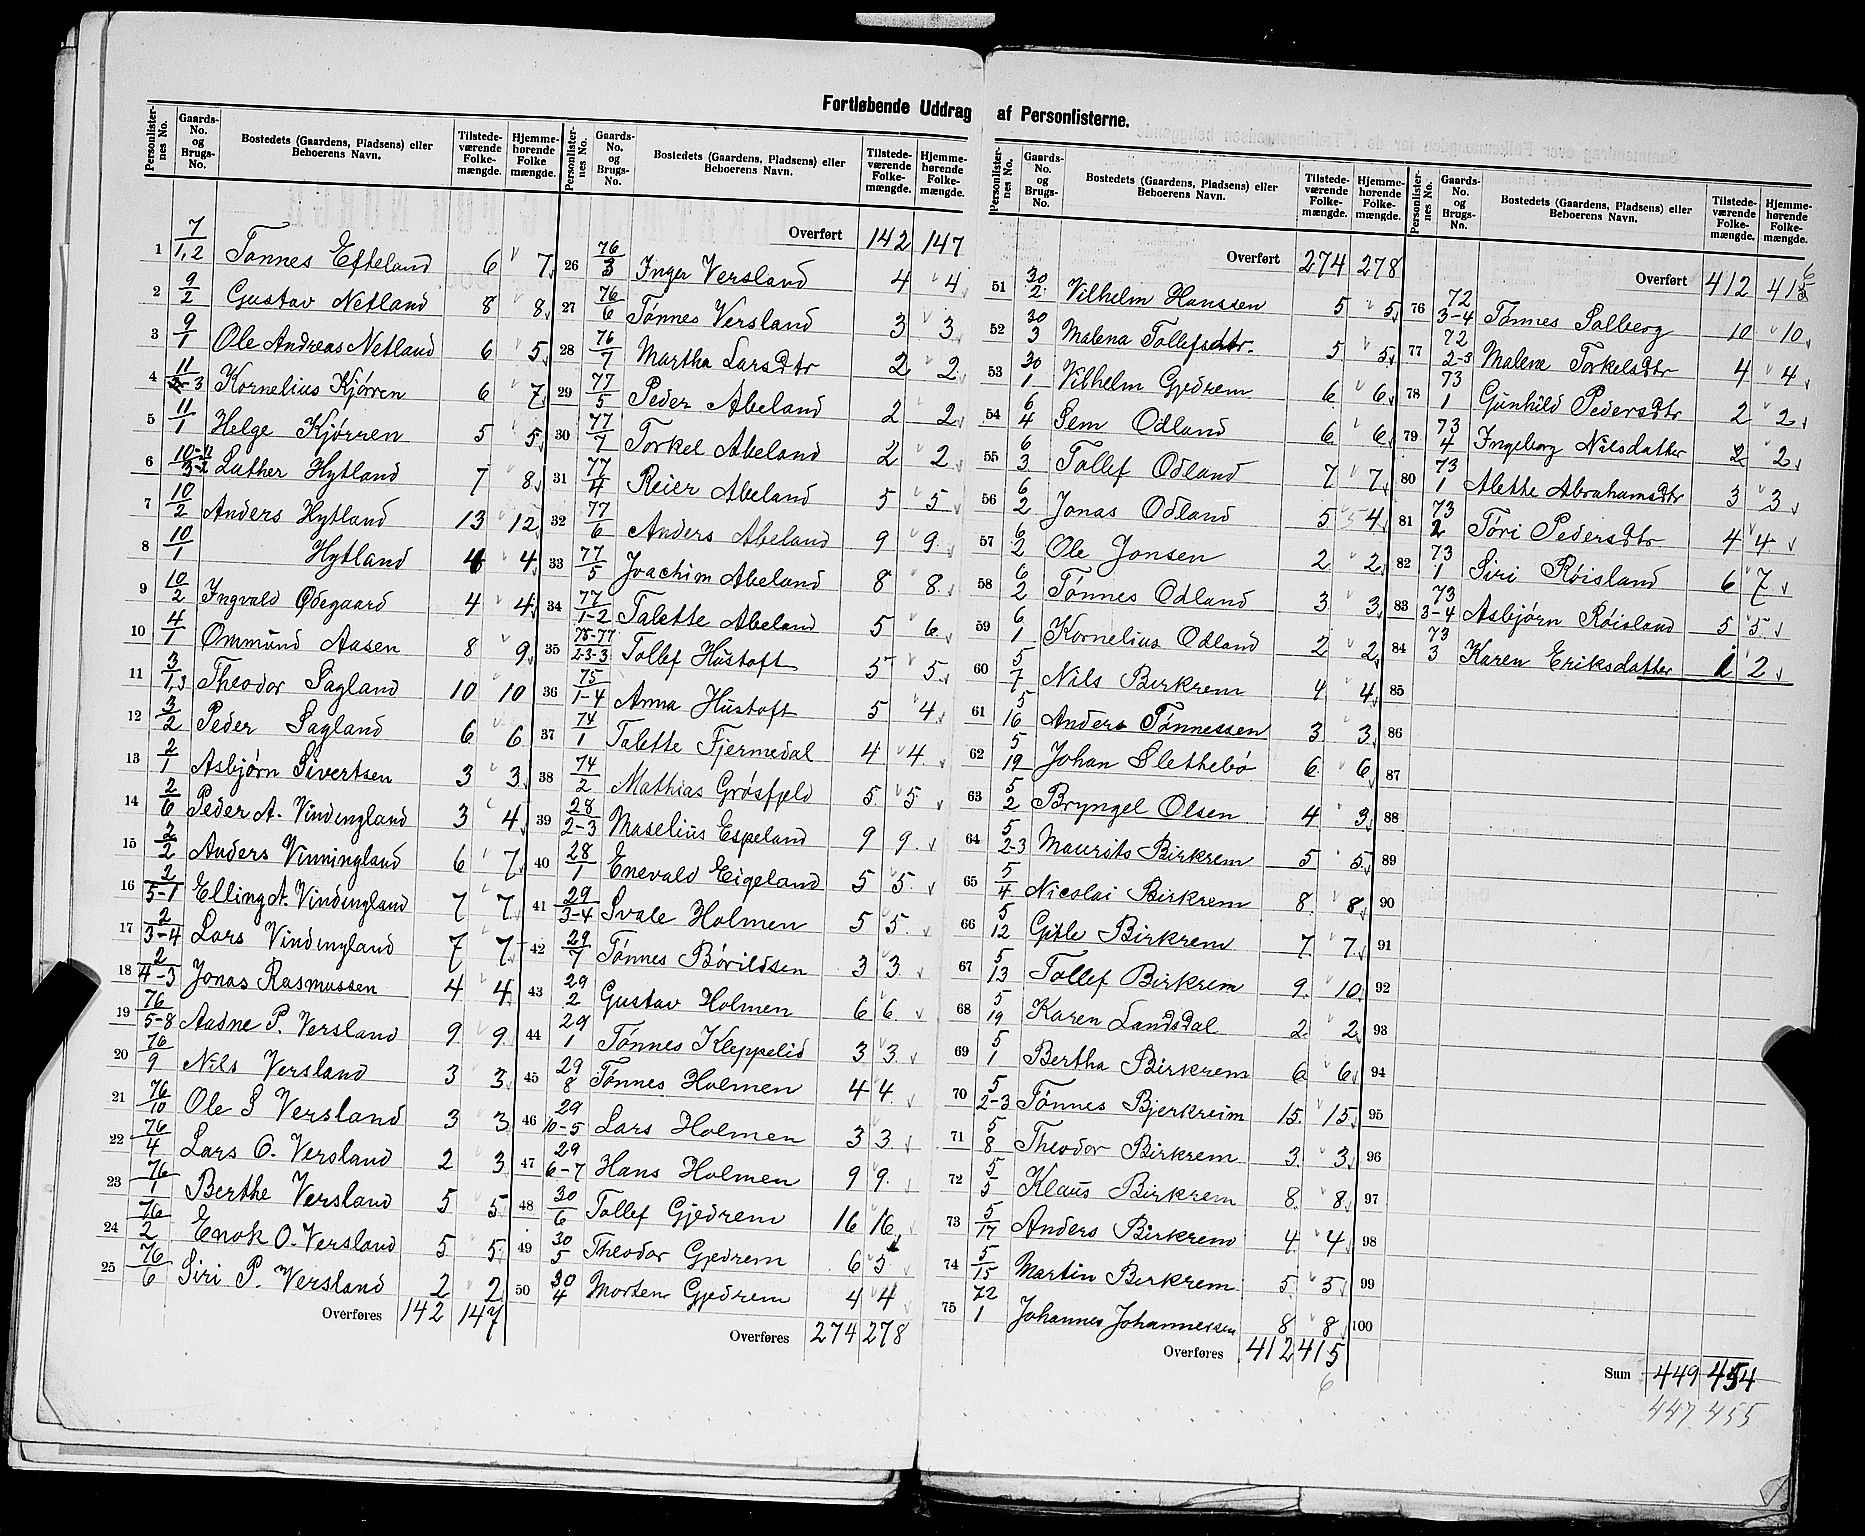 Fortløbende Uddrag af Personlisterne.
Personlister- nes No. Gaards- No. og Brugs- No. Bostedets (Gaardens, Pladsens) eller Beboerens Navn. Tilstede- værende Folke- mængde. Hjemme- hørende Folke mængde.
1 7/1,2 Tønnes Efteland 6 7
2 9/2 Gustav Netland 8 8
3 9/1 Ole Andreas Netland 6 5
4 11/3 Kornelius Kjørren 6 7
5 11/1 Helge Kjørren 5 5
6 10-11/3-2 Luther Hytland 7 8
7 10/2 Anders Hytland 13 12
8 10/1 Hytland 4 4
9 10/2 Ingvald Ødegaard 4 4
10 4/1 Ommund Aasen 8 9
11 3/1,3 Theodor Sagland 10 10
12 3/2 Peder Sagland 6 6
13 2/1 Asbjørn Sivertsen 3 3
14 2/6 Peder A. Vindingland 3 4
15 2/2 Anders Vinningland 6 7
16 2/5-1 Elling A. Vindingland 7 7
17 2/3-4 Lars Vindingland 7 7
18 2/4-3 Jonas Rasmussen 4 4
19 76/5-8 Aadne P. Versland 9 9
20 76/9 Nils Versland 3 3
21 76/10 Ole S Versland 3 3
22 76/4 Lars O. Versland 2 3
23 76/1 Berthe Versland 5 5
24 76/2 Enok O. Versland 5 5
25 76/6 Siri P. Versland 2 2
Overføres 142 147
Personlister- nes No. Gaards- No. og Brugs- No. Bostedets (Gaardens, Pladsens) eller Beboerens Navn. Tilstede- værende Folke- mængde. Hjemme- hørende Folke- mængde.
Overført 142 147
26 76/3 Inger Versland 4 4
27 76/6 Tønnes Versland 3 3
28 76/7 Martha Larsdtr 2 2
29 77/5 Peder Abeland 2 2
30 77/7 Torkel Abeland 2 2
31 77/4 Reier Abeland 5 5
32 77/6 Anders Abeland 9 9
33 77/5 Joachim Abeland 8 8
34 77/1-2 Talette Abeland 5 6
35 75-77/2-3-3 Tollef Hustoft 5 5
36 75/1-4 Anna Hustoft 5 4
37 74/1 Talette Fjermedal 4 4
38 74/2 Mathias Grøsfjeld 5 5
39 28/2-3 Maselius Espeland 9 9
40 28/1 Enevald Eigeland 5 5
41 29/3-4 Svale Holmen 5 5
42 29/7 Tønnes Bórildsen 3 3
43 29/2 Gustav Holmen 6 6
44 29/1 Tønnes Kleppelid 3 3
45 29/8 Tønnes Holmen 4 4
46 29/10-5 Lars Holmen 3 3
47 29/6-7 Hans Holmen 9 9
48 30/6 Tollef Gjedrem 16 16
49 30/5 Theodor Gjedrem 6 5
50 30/4 Morten Gjedrem 4 4
Overføres 274 278
Personlister- nes No. Gaards- No. og Brugs- No. Bostedets (Gaardens, Pladsens) eller Beboerens Navn. Tilstede- værende Folke- mængde. Hjemme- hørende Folke- mængde.
Overført 274 278
51 30/2 Vilhelm Hanssen 5 5
52 30/3 Malena Tollefsdtr. 5 5
53 30/1 Vilhelm Gjedrem 6 6
54 6/4 Sem Odland 6 6
55 6/3 Tollef Odland 7 7
56 6/2 Jonas Odland 5 4
57 6/2 Ole Jonsen 2 2
58 6/2 Tønnes Odland 3 3
59 6/1 Kornelius Odland 2 2
60 5/7 Nils Birkrem 4 4
61 5/16 Anders Tønnessen 3 3
62 5/19 Johan Slettebø 6 6
63 5/2 Bryngel Olsen 4 3
64 5/2-3 Maurits Birkrem 5 5
65 5/4 Nicolai Birkrem 8 8
66 5/12 Gitle Birkrem 7 7
67 5/13 Tollef Birkrem 9 10
68 5/19 Karen Landsdal 2 2
69 5/1 Bertha Birkrem 6 6
70 5/2-3 Tønnes Bjerkreim 15 15
71 5/8 Theodor Birkrem 3 3
72 5/5 Klaus Birkrem 8 8
73 5/17 Anders Birkrem 4 4
74 5/15 Martin Birkrem 5 5
75 72/1 Johannes Johannessen 8 8
Overføres 412 415
6
Personlister- nes No. Gaards- No. og Brugs- No. Bostedets (Gaardens, Pladsens) eller Beboerens Navn. Tilstede- værende Folke- mængde. Hjemme- hørende Folke- mængde.
6
Overført 412 415
76 72/3-4 Tønnes Solberg 10 10
77 72/2-3 Malene Torkelsdtr 4 4
78 73/1 Gunhild Pedersdtr 2 2
79 73/4 Ingeborg Nilsdatter 2 2
80 73/1 Alette Abrahamsdtr 3 3
81 73/2 Tøri Pedersdtr 4 4
82 73/1 Siri Røisland 6 7
83 73/3-4 Asbjørn Røisland 5 5
84 73/3 Karen Eriksdatter 1 2
85
86
87
88
89
90
91
92
93
94
95
96
97
98
99
100
Sum 449 454
447. 455